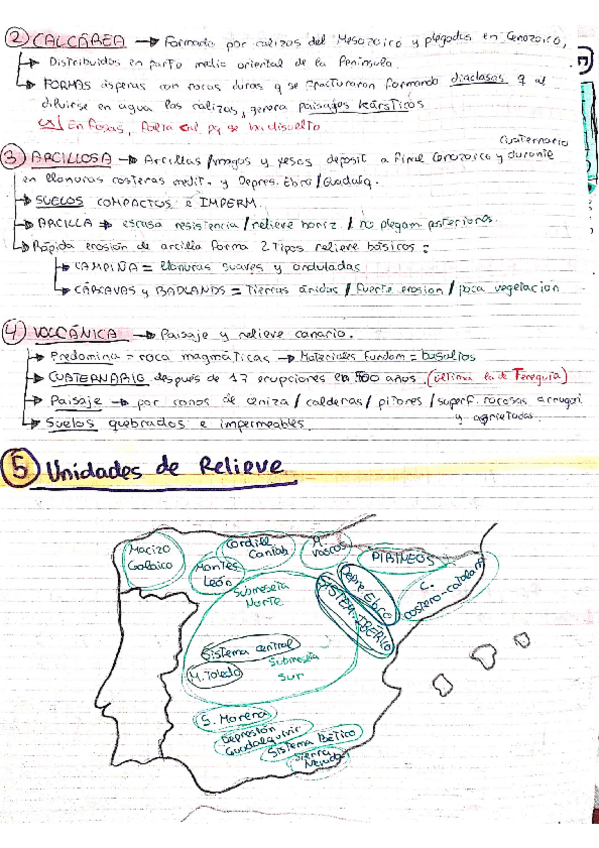 ② CALCÁREA → Formado por calizas del Mesozoico y plegados en Cenozoico,
→ Distribuidos en parte medio oriental de la Península.
→ FORMAS ásperas con rocas duras q se fracturaron formando diaclasas q al
diluirse en agua las calizas, genera paisajes kársticos
En fosas, falta cal pq se ha disuelto
Cuaternario
③ ARCILLOSA → Arcillas/margas y yesos deposit a final Cenozoico y durante
en llanuras costeras medit. y Depres. Ebro/Guadalq.
→ SUELOS COMPACTOS e IMPERM.
→ ARCILLA → escasa resistencia/relieve horiz. / no plegam posteriores.
→ Rápida erosión de arcilla forma 2 tipos relieve básicos:
→ CAMPIÑA = llanuras suaves y onduladas
→ CÁRCAVAS y BADLANDS = Tierras áridas / fuerte erosión / poca vegetación
④ VOLCÁNICA → Paisaje y relieve canario.
→ Predomina = roca magmáticas → Materiales Fundam = basaltos
→ CUATERNARIO después de 17 erupciones en 500 años. (última la de Teneguía)
→ Paisaje → por conos de ceniza / calderas / pitones / superf. rocosas arrugad
y agrietadas.
→ Suelos quebrados e impermeables.
⑤ Unidades de Relieve
Macizo
Galaico
Cordill
Cantab
M.
Vascos
PIRINEOS
Montes
León
Submeseta
Norte
Depre. Ebro
SISTEM. IBÉRICO
C.
costero-catalana
Sistema central
M. Toledo
Submeseta
Sur
S. Morena
Depresión
Guadalquivir
Sistema Bético
Sierra
Nevada